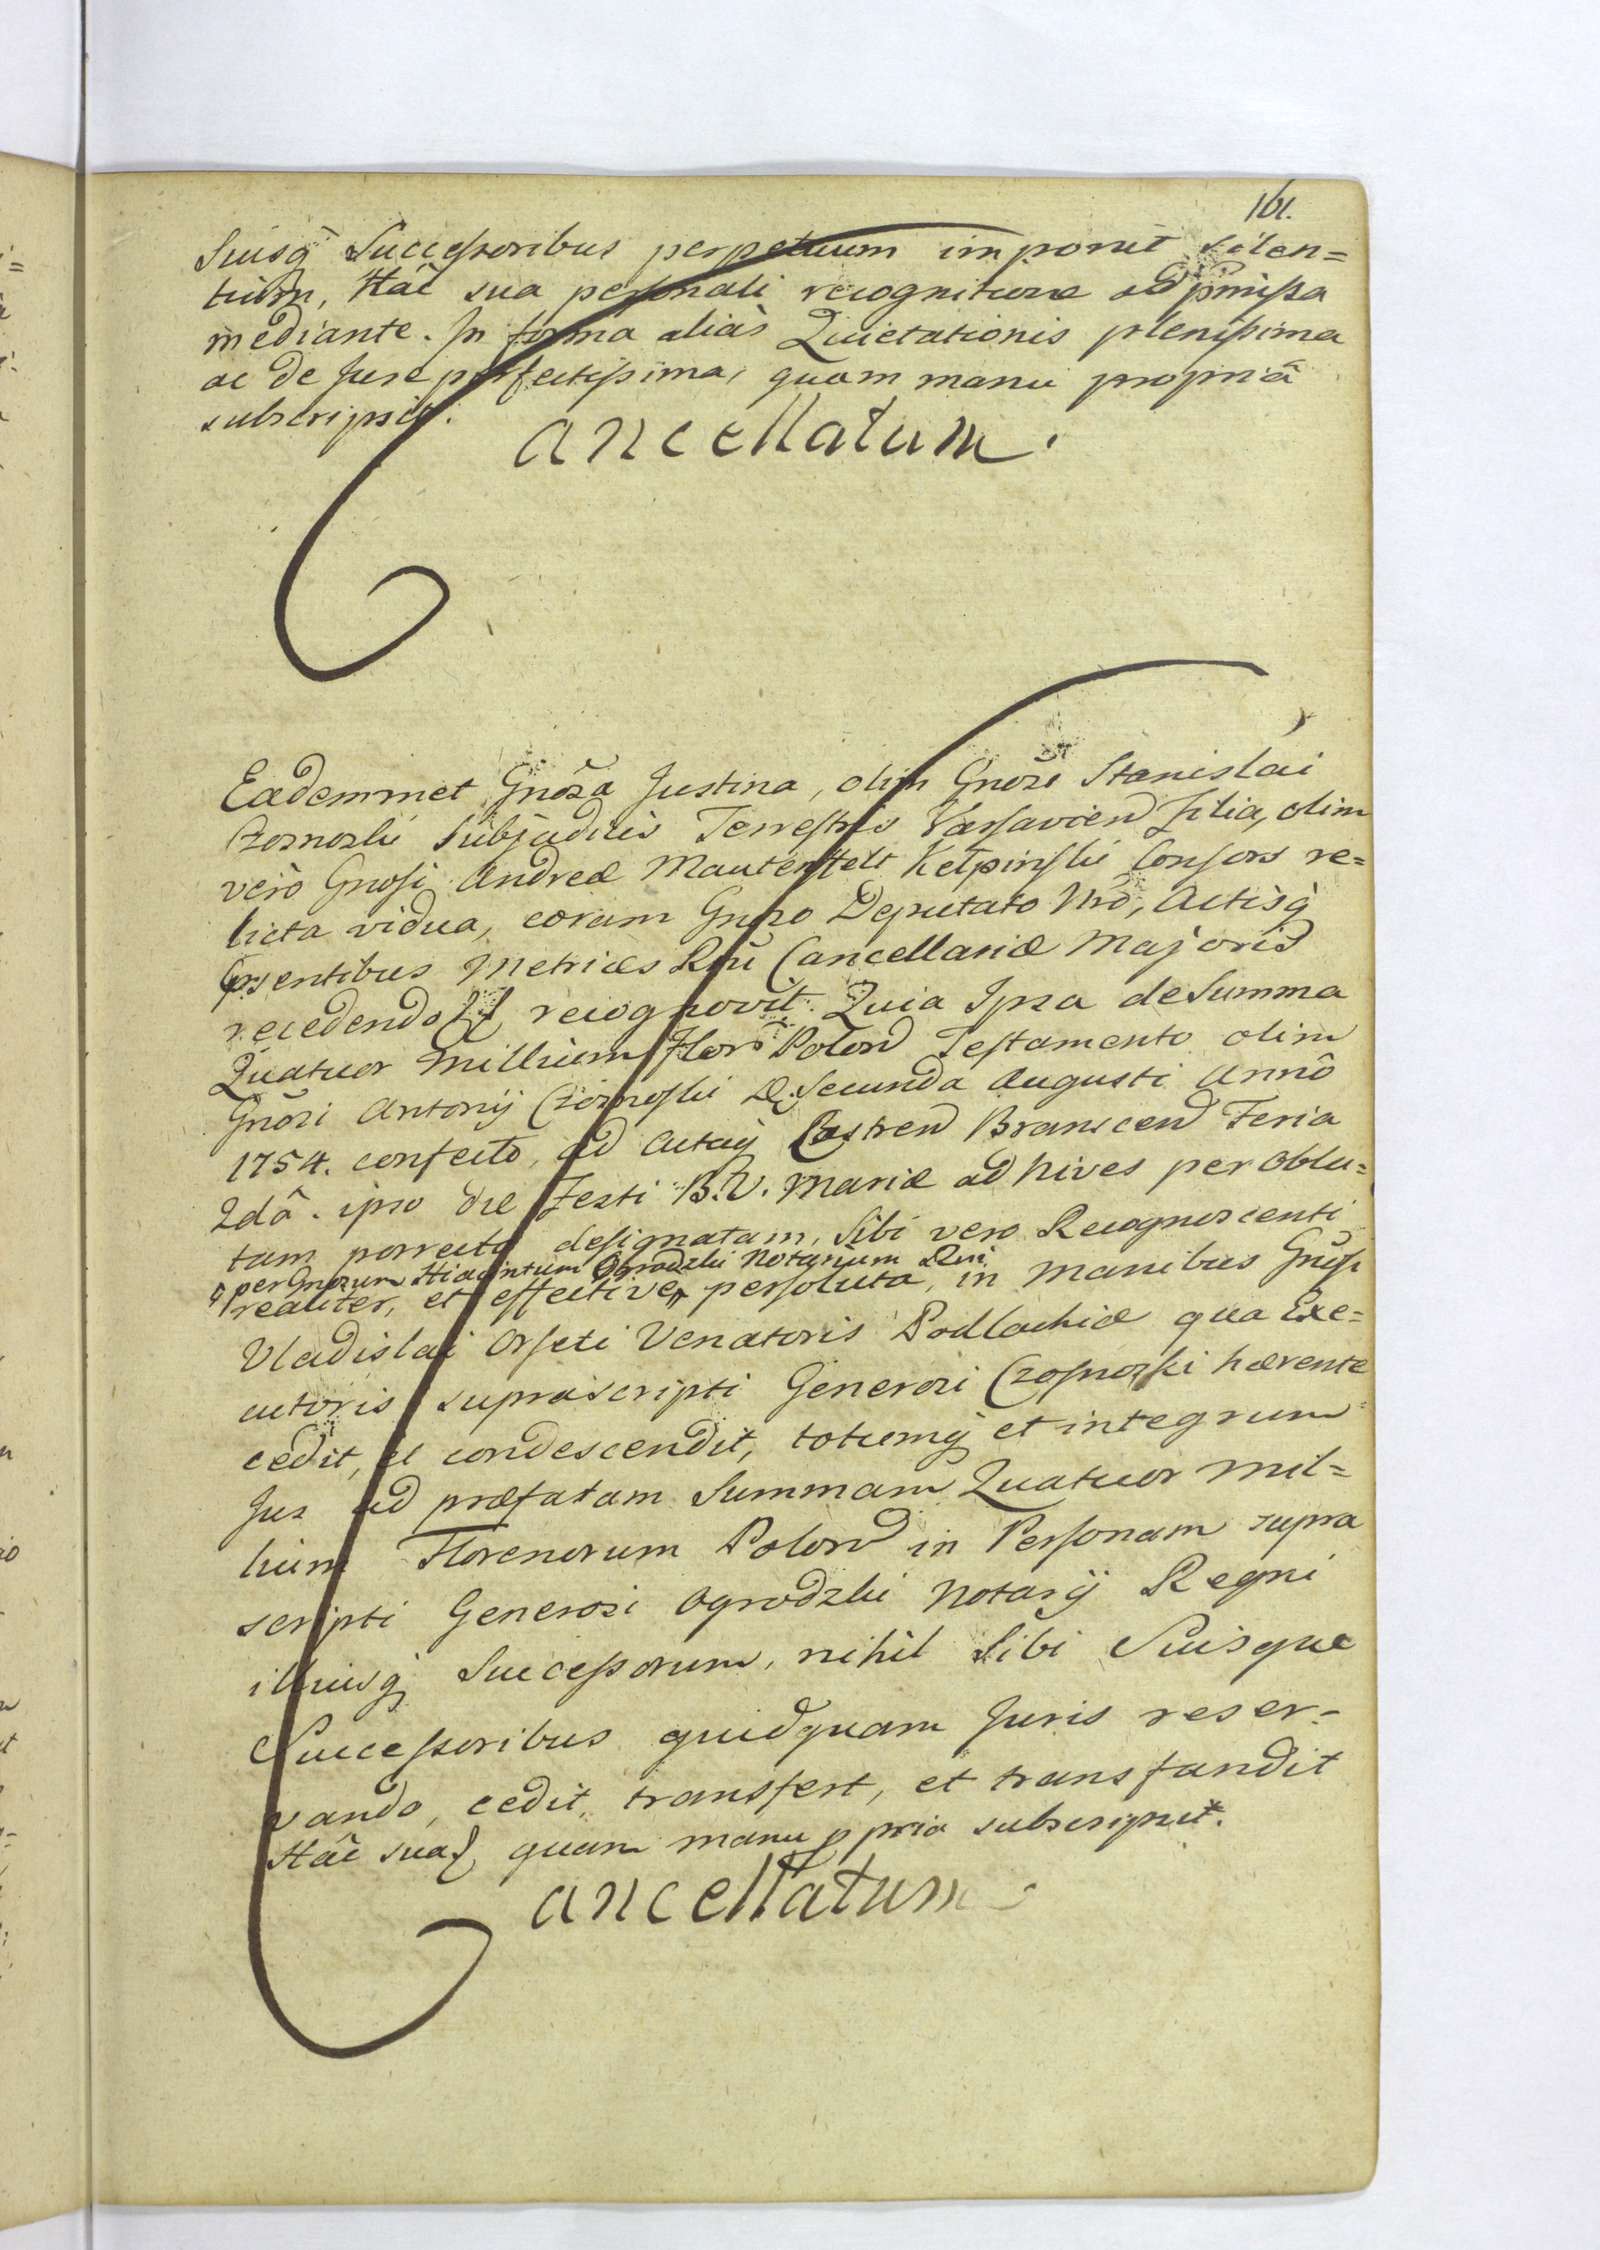 161.
Suisq̀ Successoribus perpetuum imponit silen=
tium, Hâc sua personali recognitione ad pmissa
mediante. In forma aliàs Quietationis plenissima
ac de Jure perfectissima, quam manu propriâ
subscripsit.
Cancellatum.
Eademmet Gnosa Justina, olim Gnosi Stanislai
Czosnoski Subjudicis Terrestris Varsavien Filia, olim
verò Gnosi Andreæ Mauterstelt Kelpinski Consors re=
licta vidua, coram Gnoso Deputato Nro, Actisq̀
psentibus Metrices Rni Cancellariæ Majoris
recedendo recognovit. Quia Ipsa de Summa
Quatuor Millium Flor Polon Testamento olim
Gnosi Antonij Czosnoski D. Secunda Augusti Annô
1754. confecto, ad Actaq Castren Branscen Feria
2dâ. ipso die Festi B.V. Mariæ ad Nives per Obla=
tam porrecto designatam, Sibi vero Recognoscenti
per Gnosum Hiacintum Ogrodzki Notarium Rni
realiter, et effective persoluta, in manibus Gnosi
Vladislai Orseti Venatoris Podlachiæ qua Exe=
cutoris suprascripti Generosi Czosnoski hærente
cedit, et condescendit, totumq et integrum
Jus ad præfatam Summam Quatuor mil=
lium Florenorum Polon in Personam supra
scripti Generosi Ogrodzki Notarij Regni
illiusq Successorum, nihil Sibi Suisque
Successoribus quidquam Juris reser=
vando, cedit, transfert, et transfundit
Hâc sua quam manu ppria subscripsit.
Cancellatum